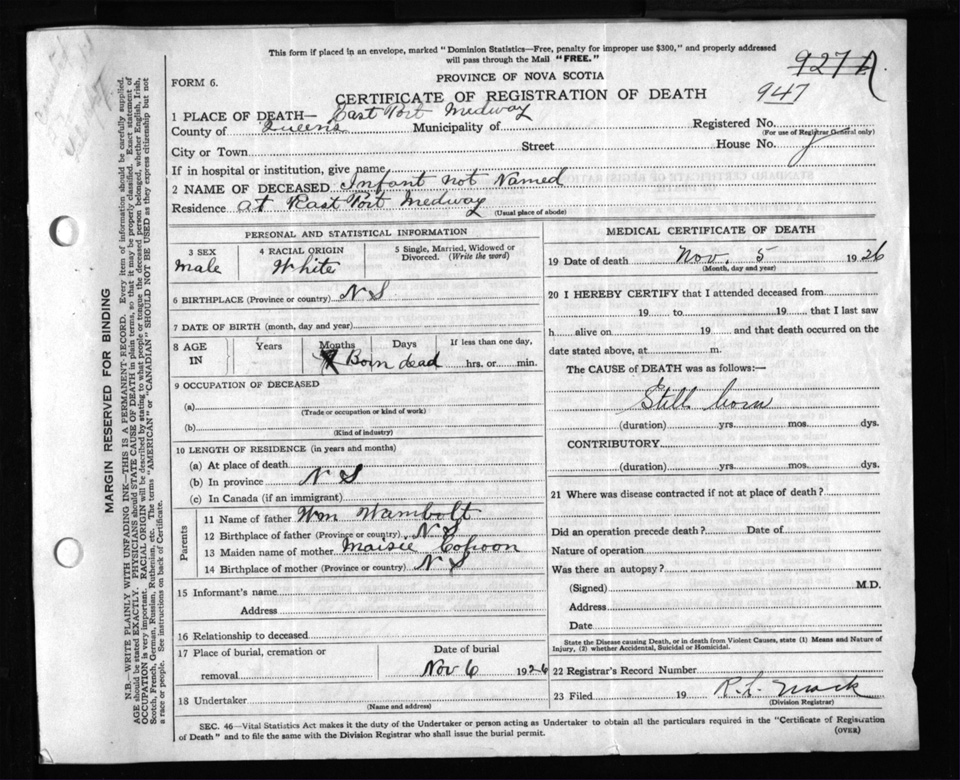 This form if placed in an envelope, marked "Dominion Statistics—Free, penalty for improper use $300," and properly addressed
will pass through the Mail "FREE."
PROVINCE OF NOVA SCOTIA
FORM 6.
CERTIFICATE OF REGISTRATION OF DEATH
927
947
1 PLACE OF DEATH— East Port Medway
County of Queens Municipality of Registered No.
(For use of Registrar General only)
City or Town Street House No.
If in hospital or institution, give name
2 NAME OF DECEASED Infant not Named
Residence at East Port Medway
(Usual place of abode)
PERSONAL AND STATISTICAL INFORMATION
3 SEX 4 RACIAL ORIGIN 5 Single, Married, Widowed or
Divorced. (Write the word)
male White
6 BIRTHPLACE (Province or country) N S
7 DATE OF BIRTH (month, day and year)
8 AGE Years Months Days If less than one day,
IN Born dead hrs. or min.
9 OCCUPATION OF DECEASED
(a)
(Trade or occupation or kind of work)
(b)
(Kind of industry)
10 LENGTH OF RESIDENCE (in years and months)
(a) At place of death
(b) In province N S
(c) In Canada (if an immigrant)
Parents
11 Name of father Wm Wambolt
12 Birthplace of father (Province or country) N S
13 Maiden name of mother Maisie
14 Birthplace of mother (Province or country) N S
15 Informant's name
Address
16 Relationship to deceased
17 Place of burial, cremation or Date of burial
removal Nov 6 1926
18 Undertaker
(Name and address)
MEDICAL CERTIFICATE OF DEATH
19 Date of death Nov. 5 1926
(Month, day and year)
20 I HEREBY CERTIFY that I attended deceased from
19 to 19 that I last saw
h alive on 19 and that death occurred on the
date stated above, at m.
The CAUSE of DEATH was as follows:—
Still born
(duration) yrs. mos. dys.
CONTRIBUTORY
(duration) yrs. mos. dys.
21 Where was disease contracted if not at place of death?
Did an operation precede death? Date of
Nature of operation
Was there an autopsy?
(Signed) M.D.
Address
Date
State the Disease causing Death, or in death from Violent Causes, state (1) Means and Nature of
Injury, (2) whether Accidental, Suicidal or Homicidal.
22 Registrar's Record Number
23 Filed 19 R. L. Mack
(Division Registrar)
SEC. 46—Vital Statistics Act makes it the duty of the Undertaker or person acting as Undertaker to obtain all the particulars required in the "Certificate of Registration
of Death" and to file the same with the Division Registrar who shall issue the burial permit.
(OVER)
MARGIN RESERVED FOR BINDING
N.B.—WRITE PLAINLY WITH UNFADING INK—THIS IS A PERMANENT RECORD. Every item of information should be carefully supplied.
AGE should be stated EXACTLY. PHYSICIANS should STATE CAUSE OF DEATH in plain terms, so that it may be properly classified. Exact statement of
OCCUPATION is very important. RACIAL ORIGIN will be described by stating to what people or tongue the deceased person belonged, whether English, Irish,
Scotch, French, German, Russian, Ruthenian, etc. The terms "AMERICAN" or "CANADIAN" SHOULD NOT BE USED as they express citizenship but not
a race or people. See instructions on back of Certificate.